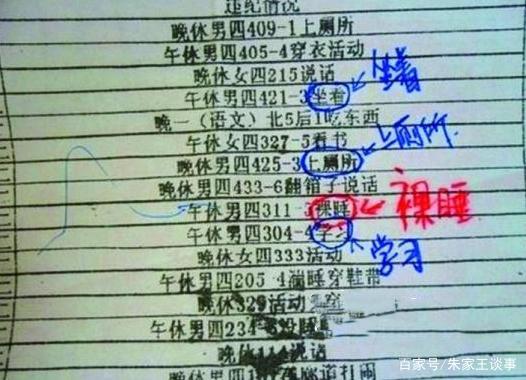 违纪情况
晚休男四409-1上厕所
午休男四405-4穿衣活动
晚休女四215说话
午休男四421-3坐着
坐着
晚一(语文)北5后1吃东西
午休女四327-5看书
上厕所
晚休男四425-3上厕所
晚休男四433-6翻箱子说话
午休男四311-3裸睡
裸睡
午休男四304-4学习
学习
晚休女四333活动
午休男四205-4湍睡穿鞋带
晚休329活动
午休男四234
晚休
说话
百家号/朱家王谈事